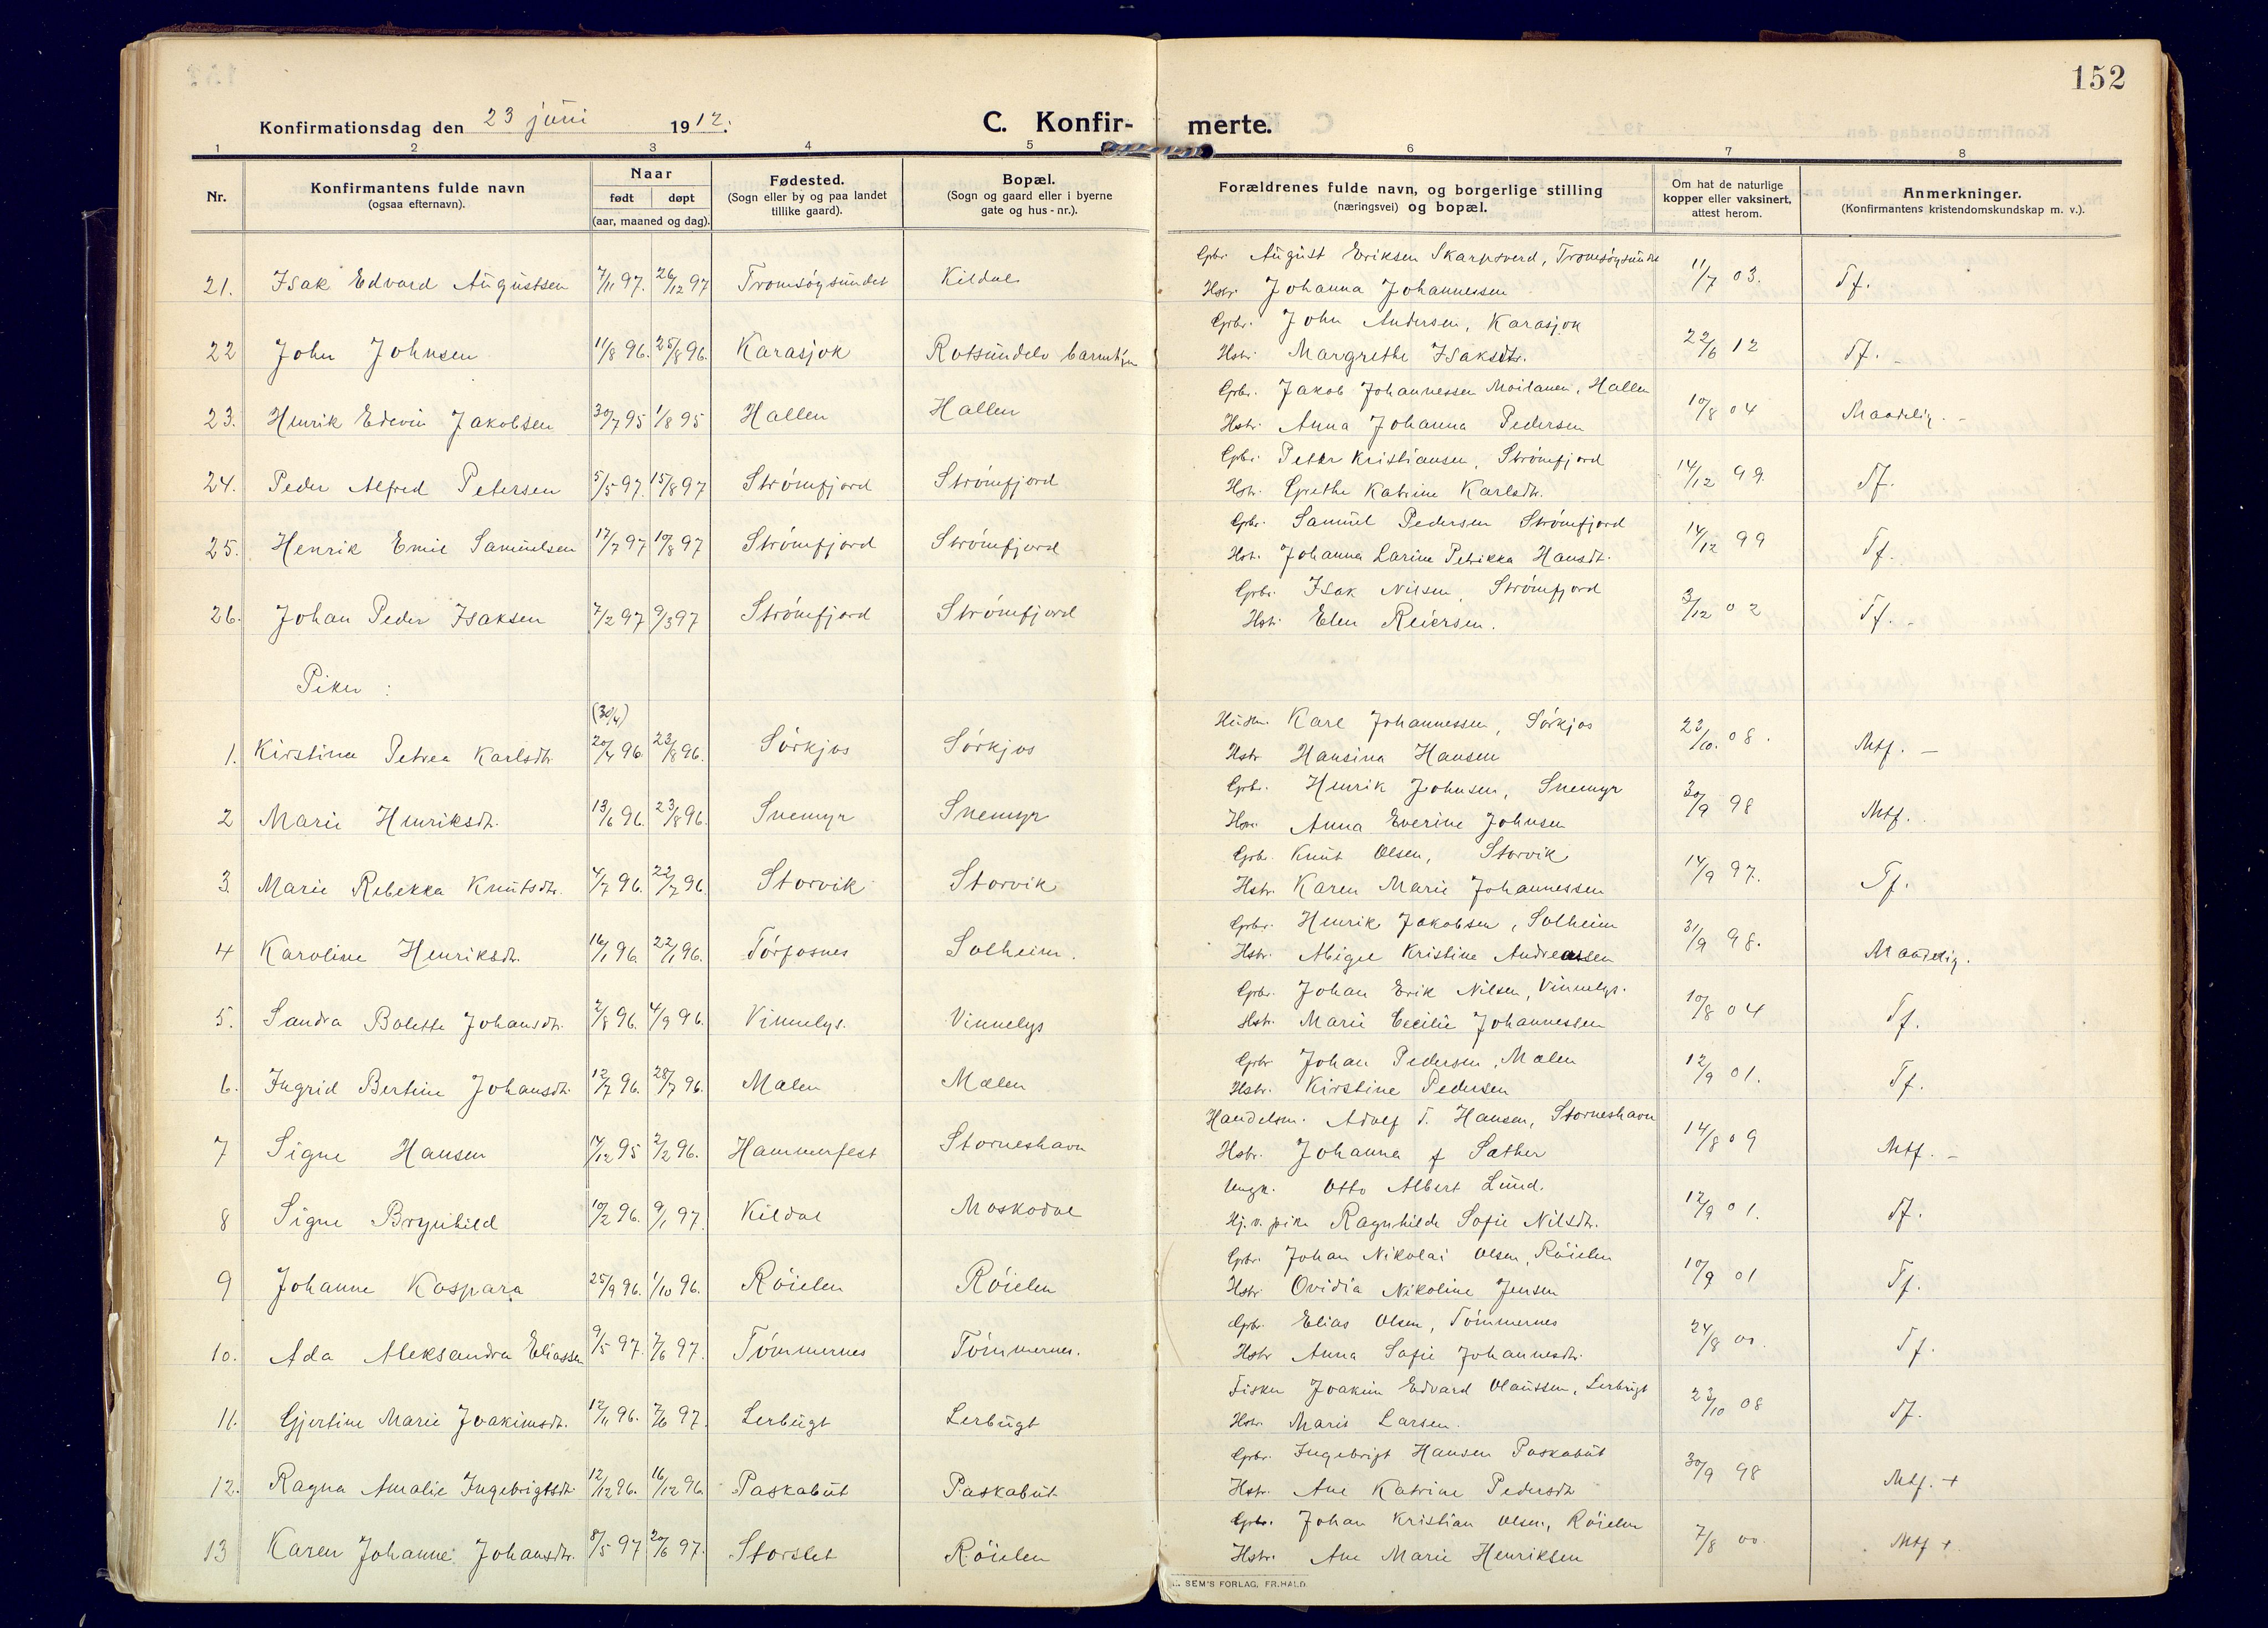 152
Konfirmationsdag den 23 juni 1912.
C. Konfir- merte.
1 2 3 4 5 6 7 8
Nr.
Konfirmantens fulde navn
(ogsaa efternavn).
Naar
født døpt
(aar, maaned og dag).
Fødested.
(Sogn eller by og paa landet
tillike gaard).
Bopæl.
(Sogn og gaard eller i byerne
gate og hus-nr.).
Forældrenes fulde navn, og borgerlige stilling
(næringsvei) og bopæl.
Om hat de naturlige
kopper eller vaksinert,
attest herom.
Anmerkninger.
(Konfirmantens kristendomskundskap m. v.).
Gbr. August Eriksen Skarpsverd, Tromsøysundet
21. Isak Edvard Augustsen 7/11 97. 26/12 97 Tromsøysundet Kildal Hstr. Johanna Johannessen 11/7 03. Tf.
Gbr. John Andersen, Karasjok
22 John Johnsen 11/8 96. 25/8 96. Karasjok Rotsundelv Hstr. Margrethe Isaksdtr. 22/6 12 Tf. -
Gbr. Jakob Johannessen Moilanen, Hallen
23. Henrik Edevin Jakobsen 30/7 95 1/8 95 Hallen Hallen Hstr. Anna Johanna Pedersen 10/8 04 Maadelig. -
Gbr. Petter Kristiansen, Strømfjord
24. Peder Alfred Petersen 5/5 97. 15/8 97 Strømfjord Strømfjord Hstr. Grethe Katrine Karlsdtr. 14/12 99. Tf.
Gbr. Samuel Pedersen Strømfjord
25. Henrik Emil Samuelsen 17/7 97 10/8 97 Strømfjord Strømfjord Hstr. Johanna Larine Petrikka Hansdt. 14/12 99 Tf.
Gbr. Isak Nilsen, Strømfjord
26. Johan Peder Isaksen 7/2 97 9/3 97 Strømfjord Strømfjord Hstr. Elen Reiersen. 3/12 02 Tf. -
Piker :
(30/4)
Husm. Karl Johannessen, Sørkjos
1. Kirstine Petrea Karlsdtr 20/4 96. 23/8 96. Sørkjos Sørkjos Hstr Hansina Hansen 23/10. 08. Mtf. -
Gbr. Henrik Johnsen, Snemyr
2 Marie Henriksdtr. 13/6 96. 23/8 96. Snemyr Snemyr Hstr. Anna Everine Johnsen 30/9 98 Mtf.
Gbr. Knut Olsen, Storvik
3. Marie Rebekka Knutsdtr. 4/7 96. 22/7 96. Storvik Storvik Hstr. Karen Marie Johannessen 14/9 97. Tf.
Gbr. Henrik Jakobsen, Solheim
4 Karoline Henriksdtr. 16/1 96. 22/1 96. Tørfosnes Solheim. Hstr. Abigel Kristine Andreassen 31/9 98. Maadelig.
Gbr. Johan Erik Nilsen, Vinnelys.
5. Sandra Bolette Johansdtr. 2/8 96. 4/9 96. Vinnelys. Vinnelys Hstr. Marie Cecilie Johannessen 10/8 04 Tf.
Gbr Johan Pedersen, Mælen
6. Ingrid Bertine Johansdtr. 12/7 96. 28/7 96. Mælen Mælen Hstr. Kirstine Pedersen 12/9 01. Tf.
Handelsm. Adolf T. Hansen, Storneshavn
7 Signe Hansen 17/12 95 2/2 96. Hammerfest Storneshavn Hstr. Johanna f Sæther 14/8 09 Mtf. -
Ungk. Otto Albert Lund.
8 Signe Brynhild 10/2 96. 9/1 97. Kildal Moskodal Hj. v. pike Ragnhilde Sofie Nilsdtr. 12/9 01. Tf.
Gbr. Johan Nikolai Olsen, Røielen
9 Johanne Kaspara 25/9 96. 1/10 96. Røielen Røielen Hstr Ovidia Nikoline Jensen 10/9 01 Tf.
Gbr. Elias Olsen, Tømmernes
10. Ada Aleksandra Eliassen 9/5 97. 7/6 97. Tømmernes Tømmernes. Hstr Anna Sofie Johannesdtr. 24/8 00. Tf.
Fisker Joakim Edvard Olaussen, Lerbugt
11. Gjertine Marie Joakimsdt. 12/11 96. 7/6 97. Lerbugt Lerbugt Hstr. Maris Larsen. 23/10 08 Tf.
Gbr. Ingebrigt Hansen Paskabut
12. Ragna Amalie Ingebrigtsdtr. 12/12 96. 16/12 96. Paskabut Paskabut. Hstr. Ane Katrine Pedersdtr 30/9 98 Mtf. +
Gbr. Johan Kristian Olsen, Røielen
13 Karen Johanne Johansdtr. 8/5 97 20/6 97. Storslet Røielen Hstr. Ane Marie Henriksen 7/8 00. Mtf +.
SEM'S FORLAG, FR.HALD.